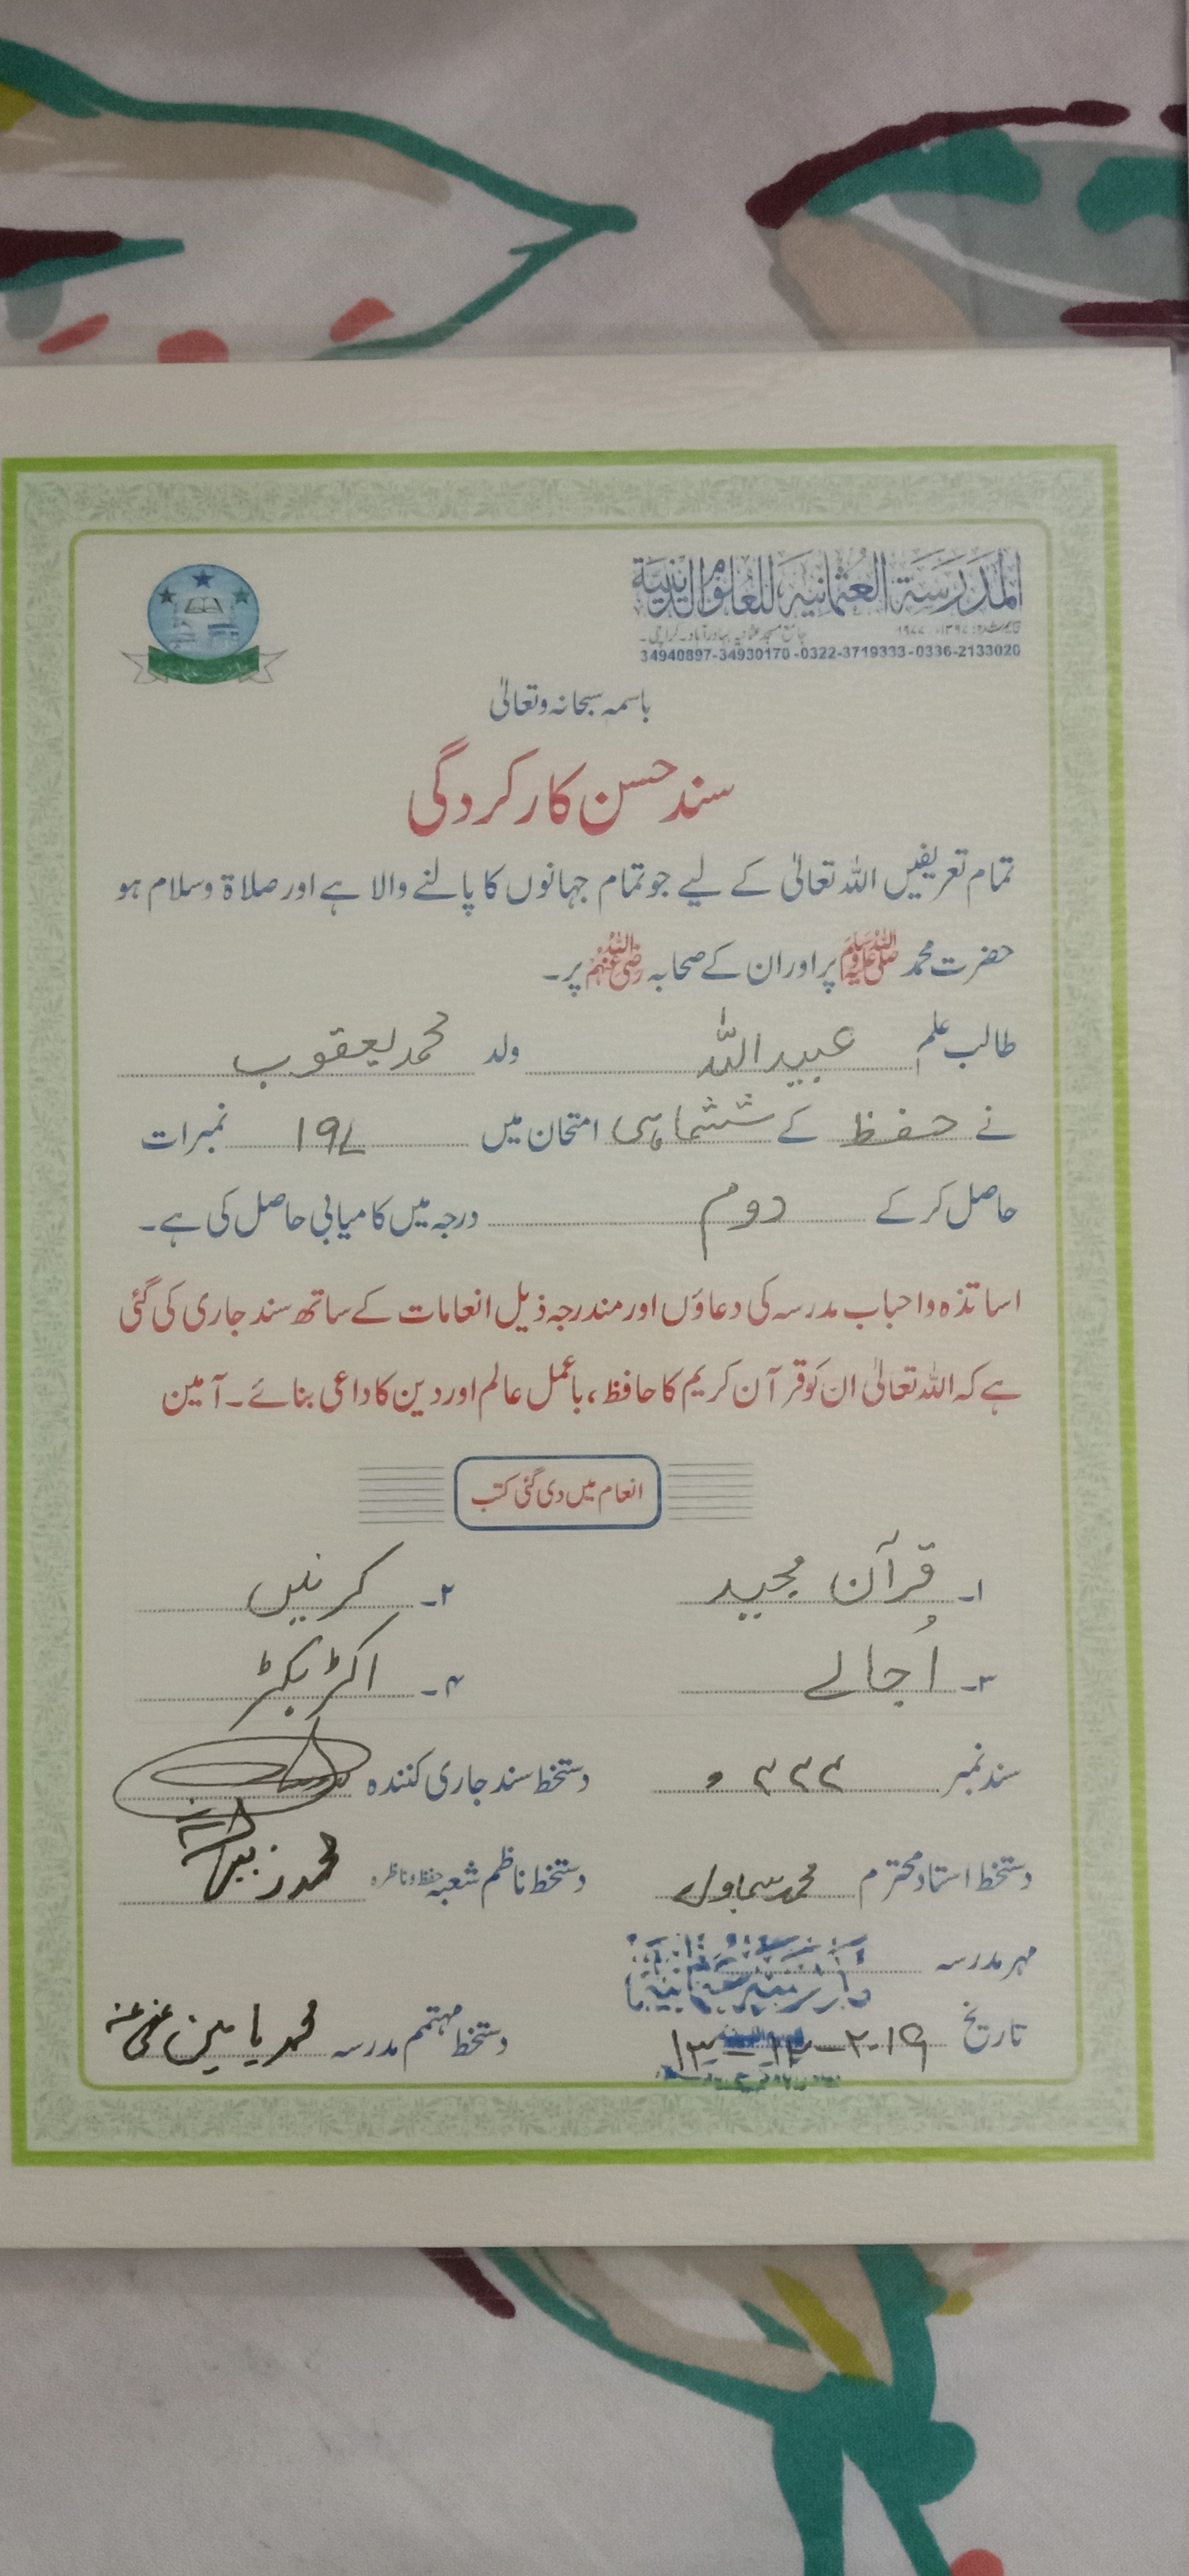 المدرسة العثمانية للعلوم الدينية
جامع مسجد عثمانیہ بہادر آباد۔ کراچی۔
34940897-34930170-0322-3719333-0336-2133020
باسمہ سبحانہ وتعالیٰ
سند حسن کارکردگی
تمام تعریفیں اللہ تعالیٰ کے لیے جو تمام جہانوں کا پالنے والا ہے اور صلاۃ وسلام ہو
حضرت محمد ﷺ پر اور ان کے صحابہ رضی اللہ عنہم پر۔
طالب علم عبید اللہ ولد محمد یعقوب
نے حفظ کے ششماہی امتحان میں ۱۹۷ نمبرات
حاصل کر کے دوم درجہ میں کامیابی حاصل کی ہے۔
اساتذہ و احباب مدرسہ کی دعاؤں اور مندرجہ ذیل انعامات کے ساتھ سند جاری کی گئی
ہے کہ اللہ تعالیٰ ان کو قرآن کریم کا حافظ، باعمل عالم اور دین کا داعی بنائے۔ آمین
انعام میں دی گئی کتب
۱۔ قرآن مجید ۲۔ کرنیں
۳۔ اُجالے ۴۔ اکڑ بکڑ
سند نمبر دستخط سند جاری کنندہ
دستخط استاد محترم محمد سماول دستخط ناظم شعبہ حفظ و ناظرہ محمد زبیر
مہر مدرسہ
تاریخ ۱۳-۱۲-۲۰۱۹ دستخط مہتمم مدرسہ محمد یامین عفی عنہ